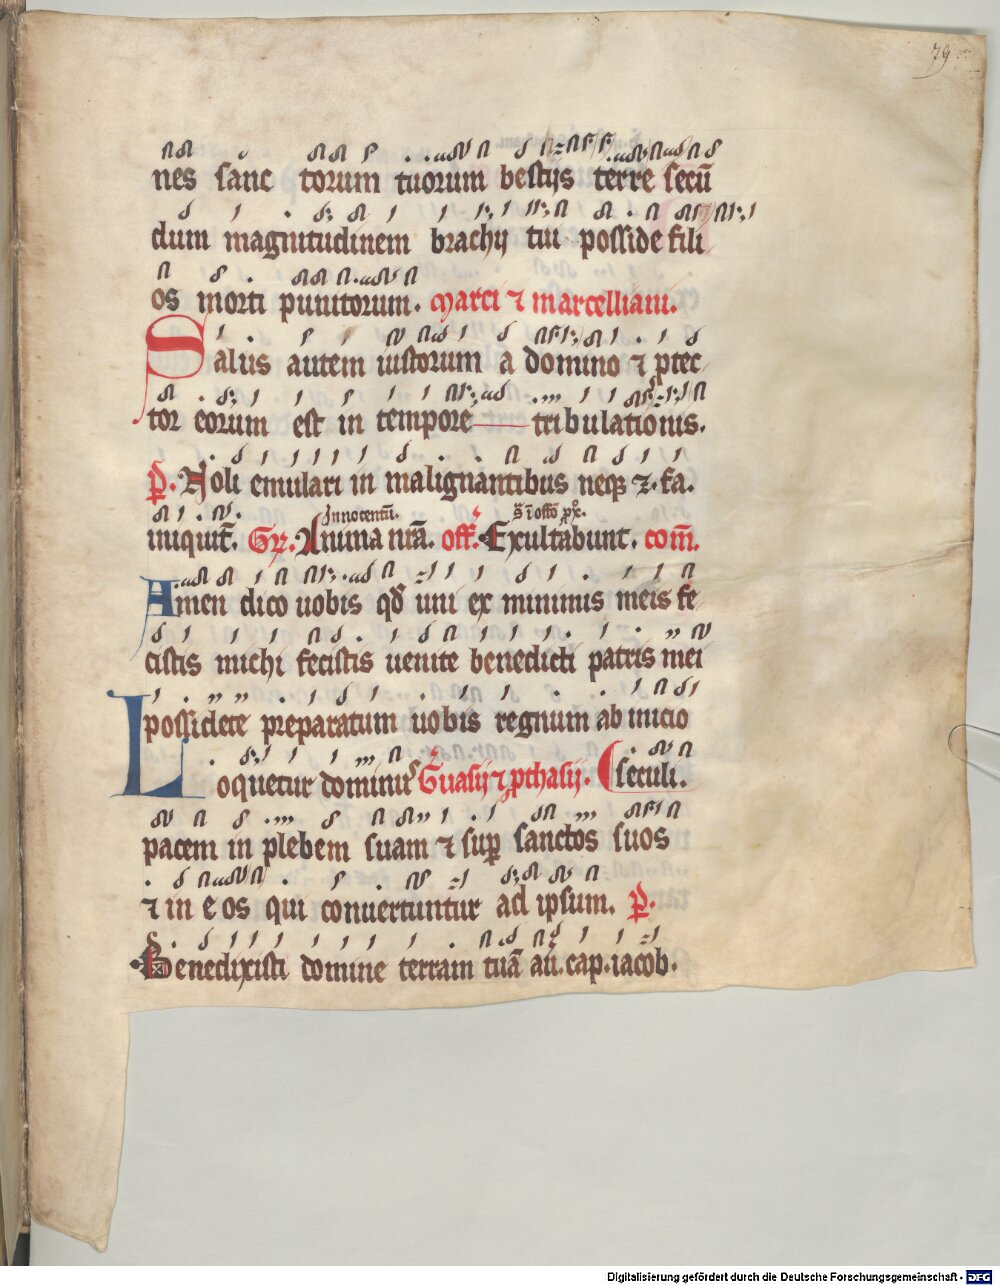 79
nes sanc torum tuorum bestijs terre secū
dum magnitudinem brachij tui posside fili
os morti punitorum. Marci ⁊ marcelliani.
Salus autem iustorum a domino ⁊ ꝓtec
tor eorum est in tempore tribulationis.
p̄. Noli emulari in malignantibus neqꝫ z. fa.
Innocentū.
iniquit̄. Gr̄. Anima nr̄a. off. Exultabunt. com̄.
Amen dico uobis qd̄ uni ex minimis meis fe
cistis michi fecistis uenite benedicti patris mei
possidete preparatum uobis regnum ab inicio
seculi.
Loquetur dominus Geruasij ⁊ ꝓthasij.
pacem in plebem suam ⁊ suꝑ sanctos suos
⁊ in eos qui conuertuntur ad ipsum. p̄.
Benedixisti domine terram tuā au. cap. iacob.
Digitalisierung gefördert durch die Deutsche Forschungsgemeinschaft - DFG